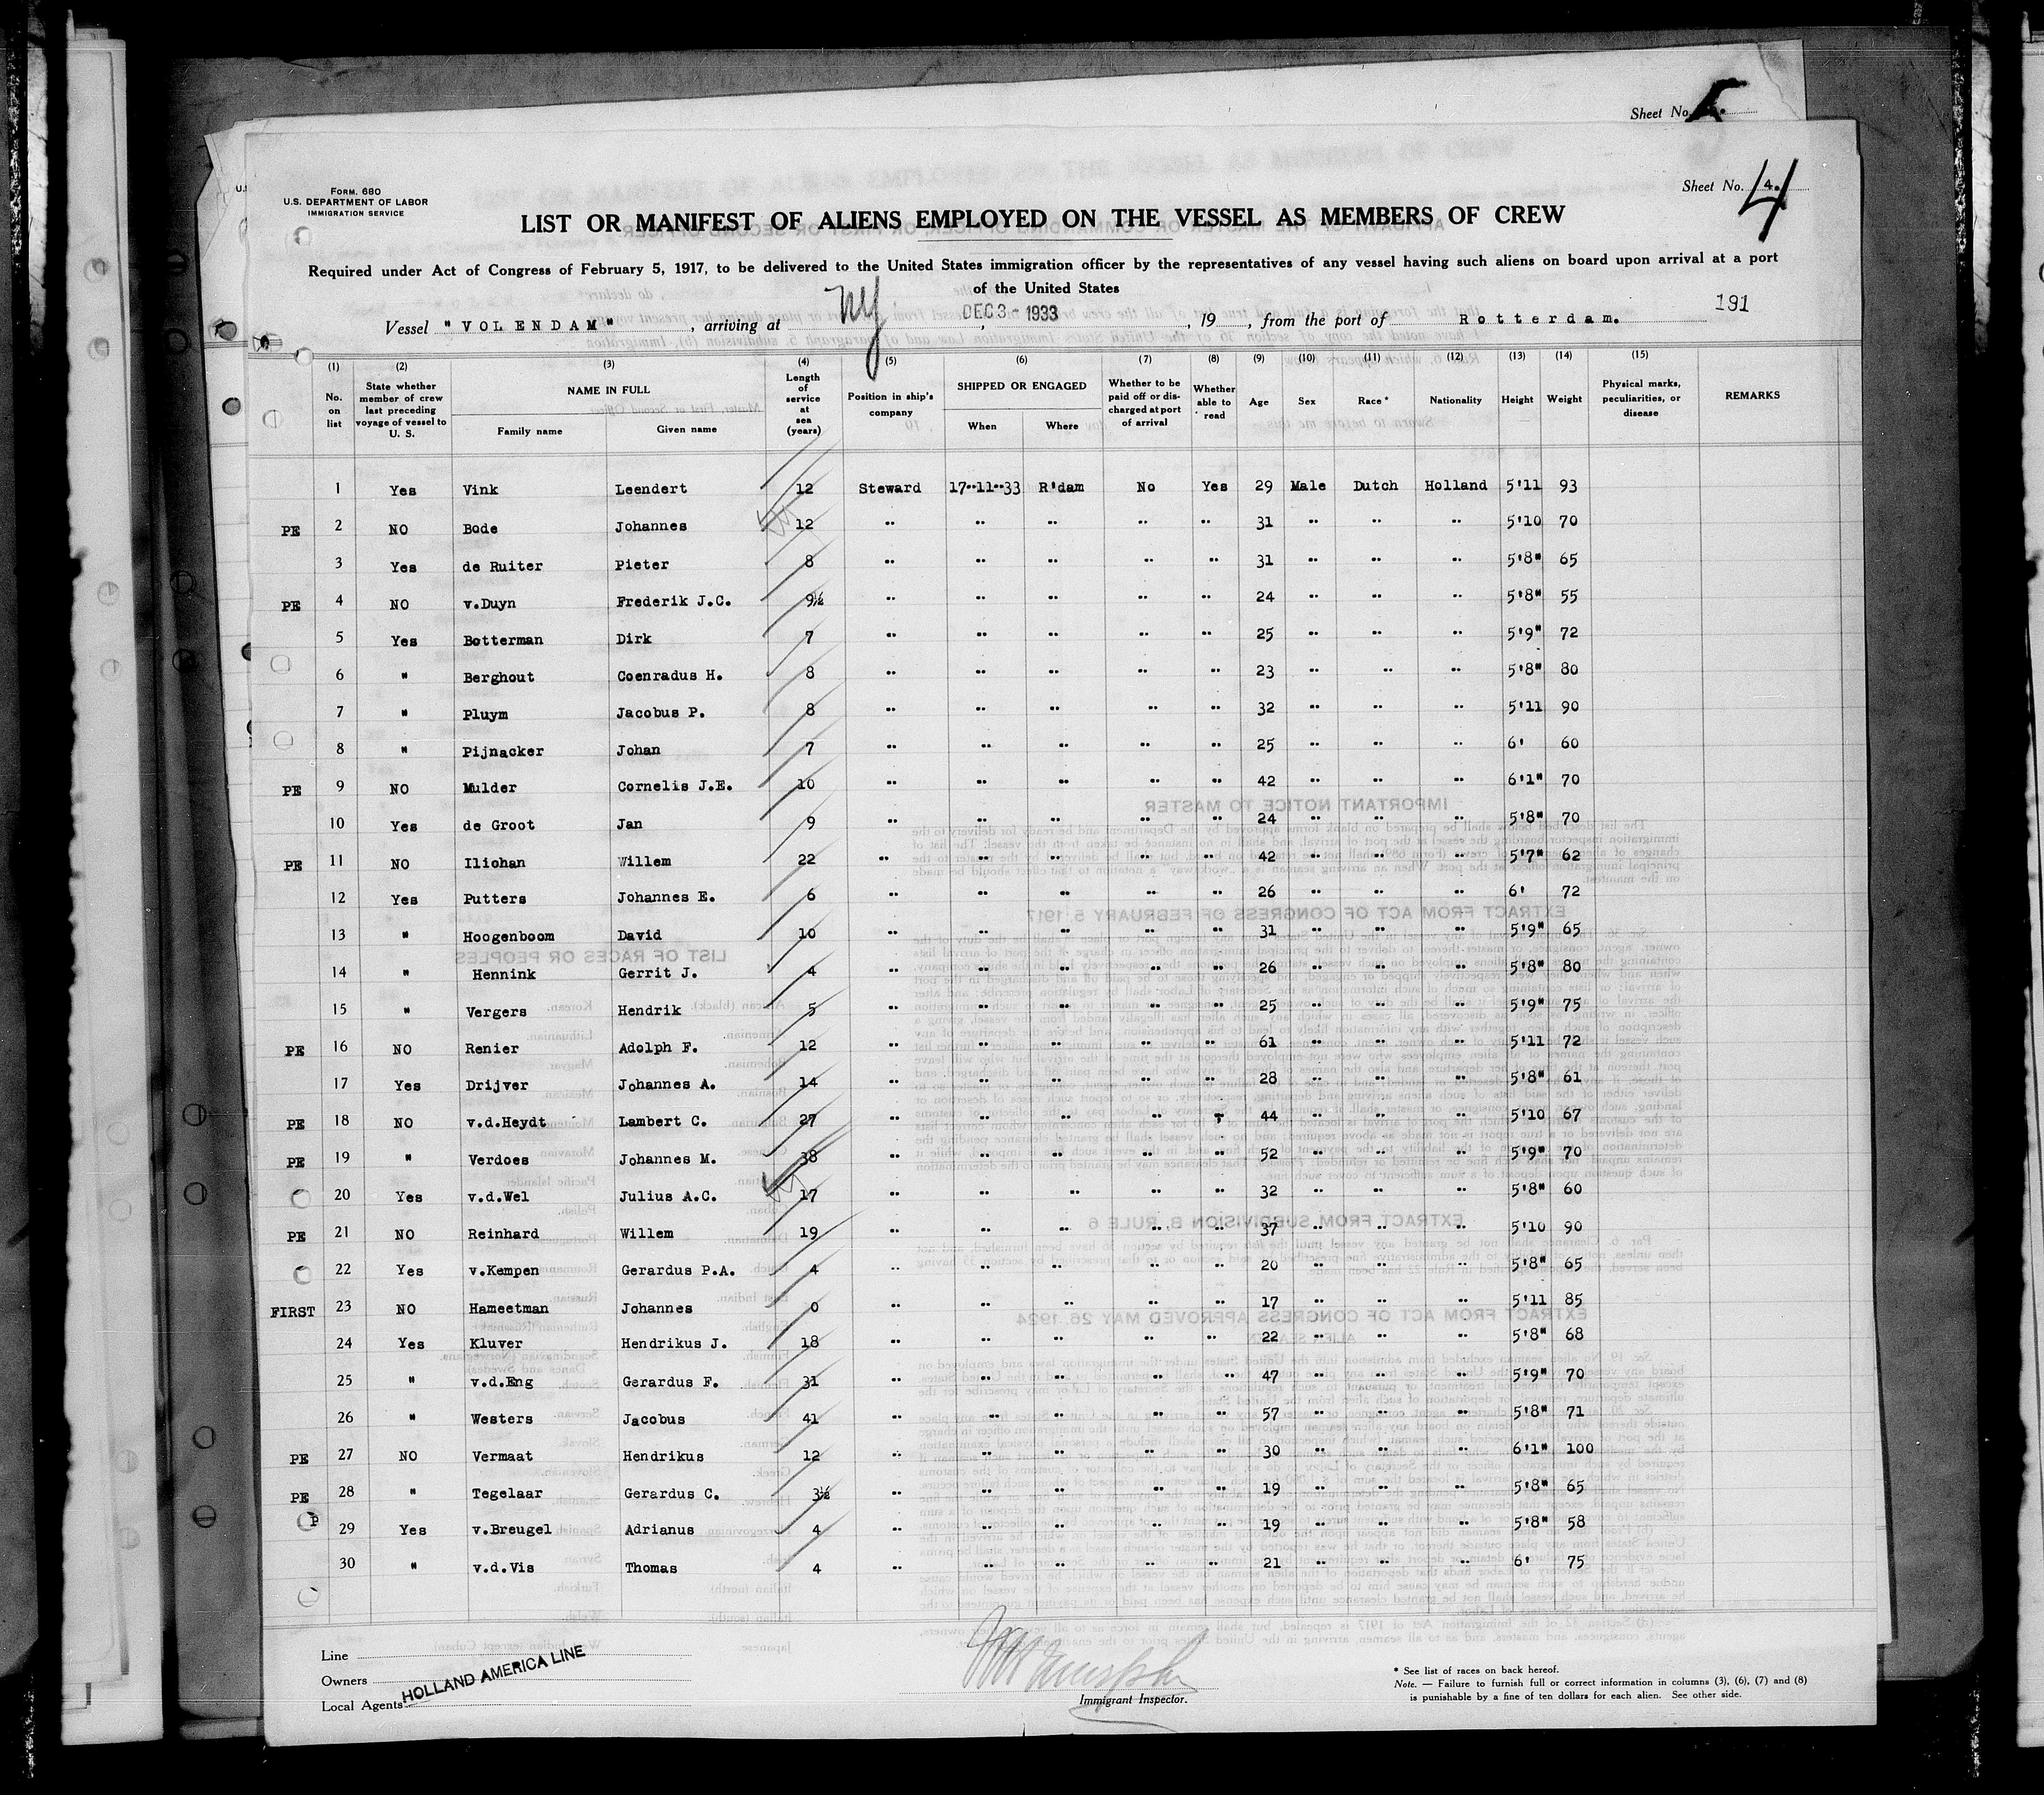 Sheet No.
Sheet No. 4.
4
FORM. 680
U.S. DEPARTMENT OF LABOR
IMMIGRATION SERVICE
LIST OR MANIFEST OF ALIENS EMPLOYED ON THE VESSEL AS MEMBERS OF CREW
Required under Act of Congress of February 5, 1917, to be delivered to the United States immigration officer by the representatives of any vessel having such aliens on board upon arrival at a port
of the United States
Vessel "VOLENDAM", arriving at NY, DEC 3 - 1933, 19, from the port of Rotterdam. 191
(1) (2) (3) (4) (5) (6) (7) (8) (9) (10) (11) (12) (13) (14) (15)
No. on list State whether member of crew last preceding voyage of vessel to U. S. NAME IN FULL Family name Given name Length of service at sea (years) Position in ship's company SHIPPED OR ENGAGED When Where Whether to be paid off or discharged at port of arrival Whether able to read Age Sex Race * Nationality Height Weight Physical marks, peculiarities, or disease REMARKS
1 Yes Vink Leendert 12 Steward 17-11-33 R'dam No Yes 29 Male Dutch Holland 5'11 93
PE 2 NO Bode Johannes 12 " " " " " 31 " " " 5'10 70
3 Yes de Ruiter Pieter 8 " " " " " 31 " " " 5'8" 65
PE 4 NO v.Duyn Frederik J.C. 9½ " " " " " 24 " " " 5'8" 55
5 Yes Botterman Dirk 7 " " " " " 25 " " " 5'9" 72
6 " Berghout Coenradus H. 8 " " " " " 23 " " " 5'8" 80
7 " Pluym Jacobus P. 8 " " " " " 32 " " " 5'11 90
8 " Pijnacker Johan 7 " " " " " 25 " " " 6' 60
PE 9 NO Mulder Cornelis J.E. 10 " " " " " 42 " " " 6'1" 70
10 Yes de Groot Jan 9 " " " " " 24 " " " 5'8" 70
PE 11 NO Iliohan Willem 22 " " " " " 42 " " " 5'7" 62
12 Yes Putters Johannes E. 6 " " " " " 26 " " " 6' 72
13 " Hoogenboom David 10 " " " " " 31 " " " 5'9" 65
14 " Hennink Gerrit J. 4 " " " " " 26 " " " 5'8" 80
15 " Vergers Hendrik 5 " " " " " 25 " " " 5'9" 75
PE 16 NO Renier Adolph F. 12 " " " " " 61 " " " 5'11 72
17 Yes Drijver Johannes A. 14 " " " " " 28 " " " 5'8" 61
PE 18 NO v.d.Heydt Lambert C. 27 " " " " " 44 " " " 5'10 67
PE 19 " Verdoes Johannes M. 38 " " " " " 52 " " " 5'9" 70
20 Yes v.d.Wel Julius A.C. 17 " " " " " 32 " " " 5'8" 60
PE 21 NO Reinhard Willem 19 " " " " " 37 " " " 5'10 90
22 Yes v.Kempen Gerardus P.A. 4 " " " " " 20 " " " 5'8" 65
FIRST 23 NO Hameetman Johannes 0 " " " " " 17 " " " 5'11 85
24 Yes Kluver Hendrikus J. 18 " " " " " 22 " " " 5'8" 68
25 " v.d.Eng Gerardus F. 31 " " " " " 47 " " " 5'9" 70
26 " Westers Jacobus 41 " " " " " 57 " " " 5'8" 71
PE 27 NO Vermaat Hendrikus 12 " " " " " 30 " " " 6'1" 100
PE 28 " Tegelaar Gerardus C. 3½ " " " " " 19 " " " 5'8" 65
P 29 Yes v.Breugel Adrianus 4 " " " " " 19 " " " 5'8" 58
30 " v.d.Vis Thomas 4 " " " " " 21 " " " 6' 75
Line
Owners
Local Agents
HOLLAND AMERICA LINE
Immigrant Inspector.
* See list of races on back hereof.
Note. — Failure to furnish full or correct information in columns (3), (6), (7) and (8)
is punishable by a fine of ten dollars for each alien. See other side.